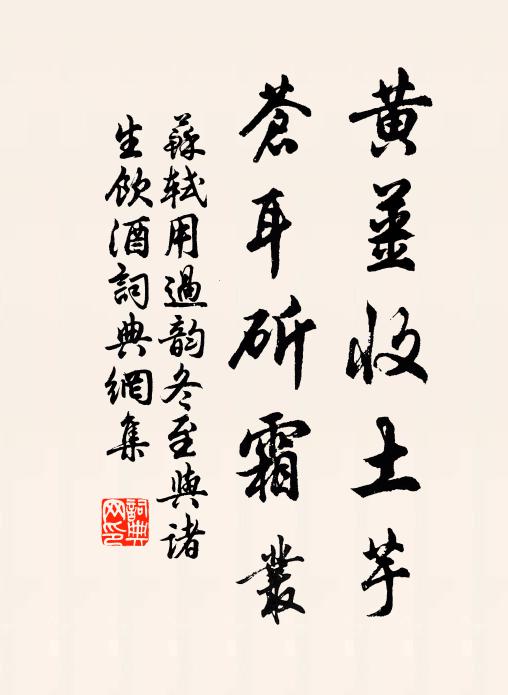 黄薑收土芋
蒼耳斫霜叢
蘇軾用過韵冬至與諸
生飲酒詞典網集
詞典
网印